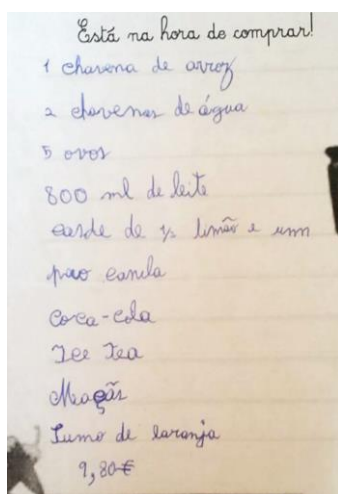 Está na hora de comprar!
1 chavena de arroz
2 chavenas de água
5 ovos
800 ml de leite
casde de ½ limão e um
pao canela
Coca-cola
Ice Tea
Maçãs
Sumo de laranja
9,80€